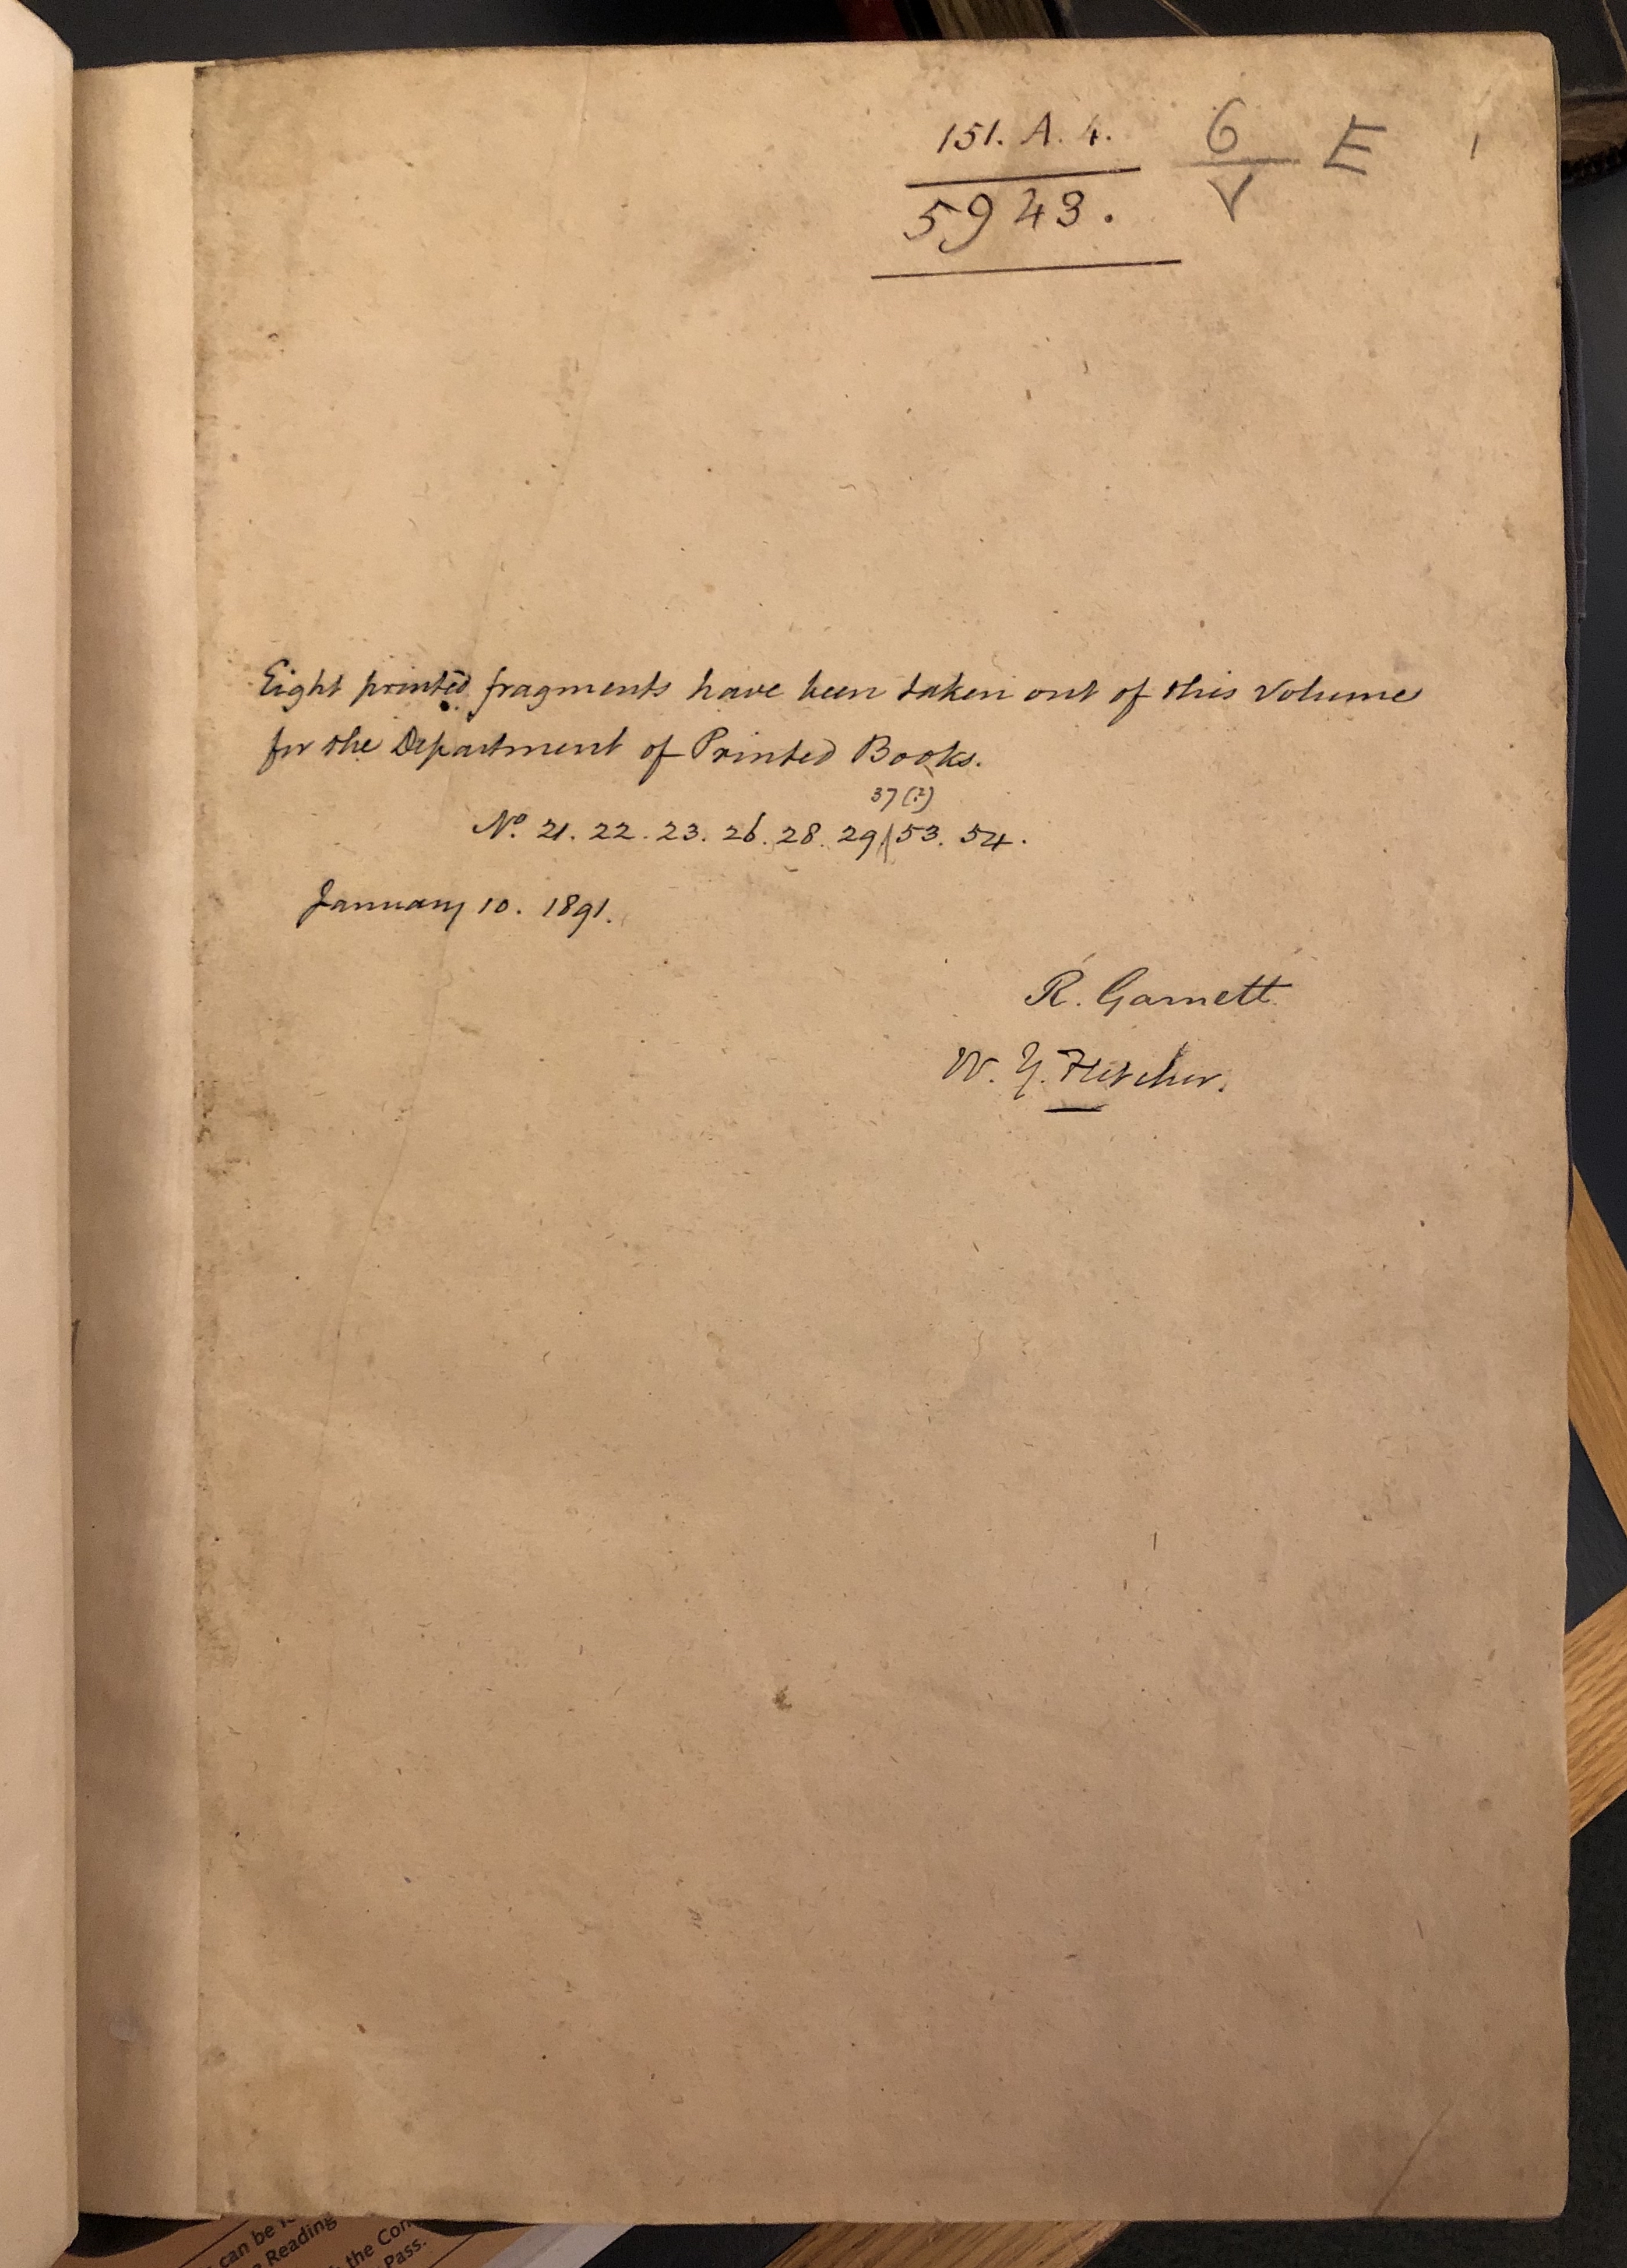 151. A. 4.
5943.
6
V
E
1
Eight printed fragments have been taken out of this Volume
for the Department of Printed Books.
37(?)
No. 21. 22. 23. 26. 28. 29/53. 54.
January 10. 1891.
R. Garnett.
W. Y. Fletcher.
can be
Reading
the Con
Pass.